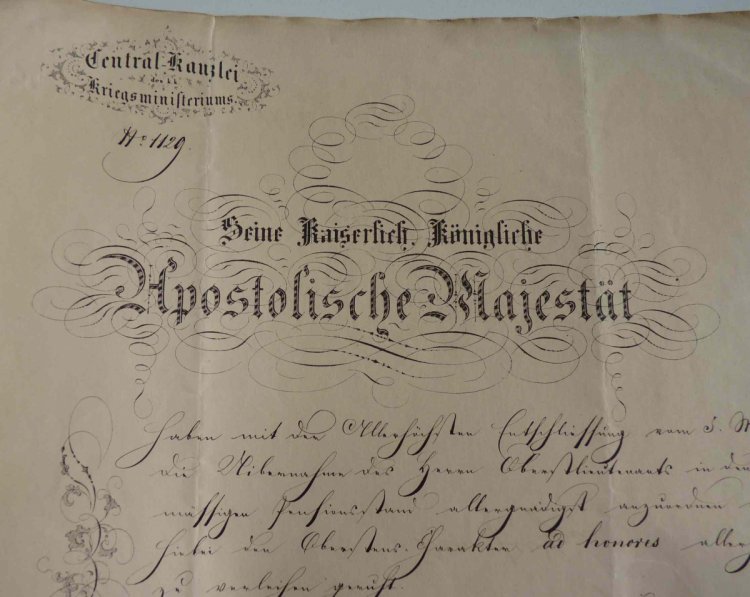 Central-Kanzlei
des
Kriegsministeriums.
No 1129.
Seine Kaiserlich, Königliche
Apostolische Majestät
haben mit der Allerhöchsten Entschliessung vom 5.
die Uibernahme des Herrn Oberstlieutenants in den
mässigen Pensionsstand allergnädigst anzuordnen
hiebei den Oberstens-Charakter ad honores
zu verleihen geruht.